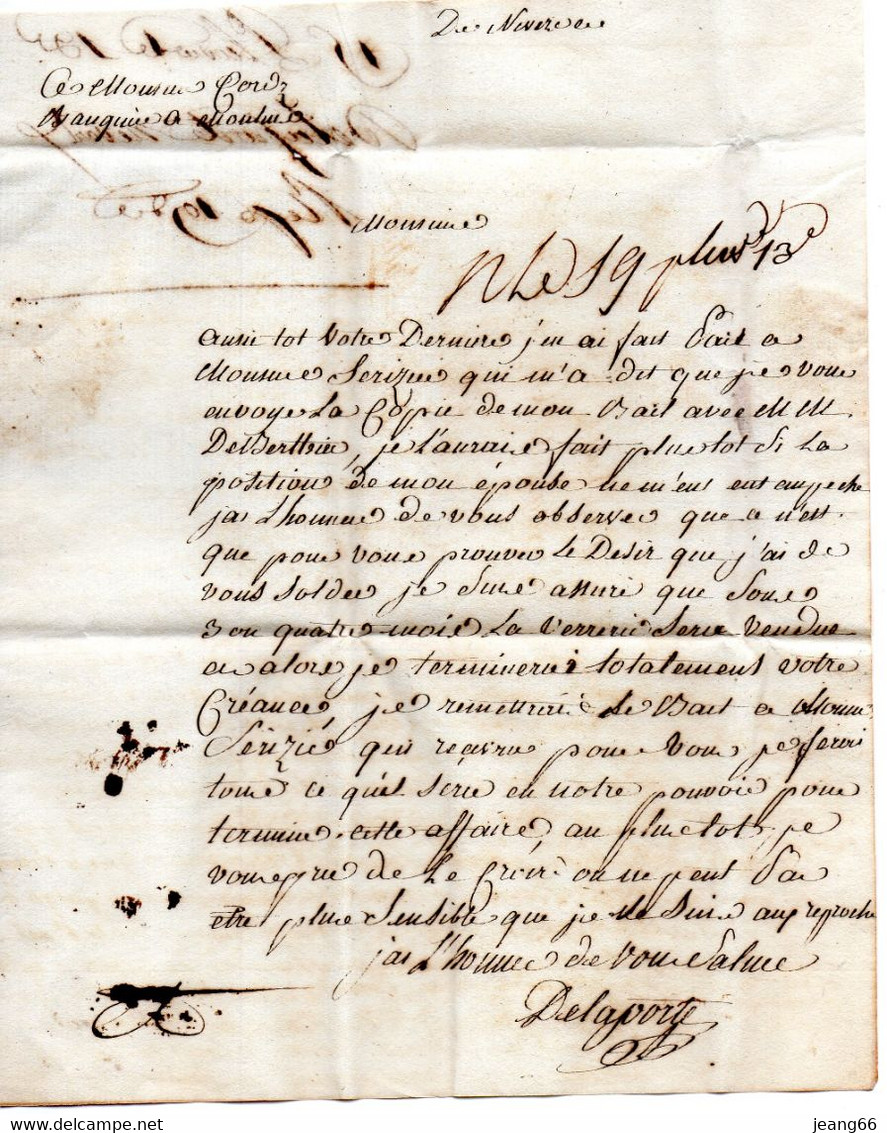 De Nevers ce
A Monsieur Cordz
Banquier a Moulins
Monsieur
Le 19 pluv 13e
aussi tot votre Derniere j'en ai fait Part a
Monsieur Serizier qui m'a dit que je vous
envoye La Copie de mon Bail avec M M
DeBerthier, je l'aurais fait plus tot Si La
position de mon épouse ne m'en eut empeche
jai L'honneur de vous observer que ce n'est
que pour vous prouver Le Desir que j'ai de
vous solder je Suis assuré que Sous
3 ou quatre mois La verrerie Sera vendue
a alors je terminerai totalement votre
Créance, je remettrai Le Bail a Monsr
Sérizié qui recevra pour vous je ferai
tous ce quil sera en notre pouvoir pour
terminer cette affaire au plus tot, je
vous prie de Le Croire on ne peut Pas
etre plus Sensible que je Le Suis aux reproche
jai L'honneur de vous Saluer
Delaporte
delcampe.net
jeang66